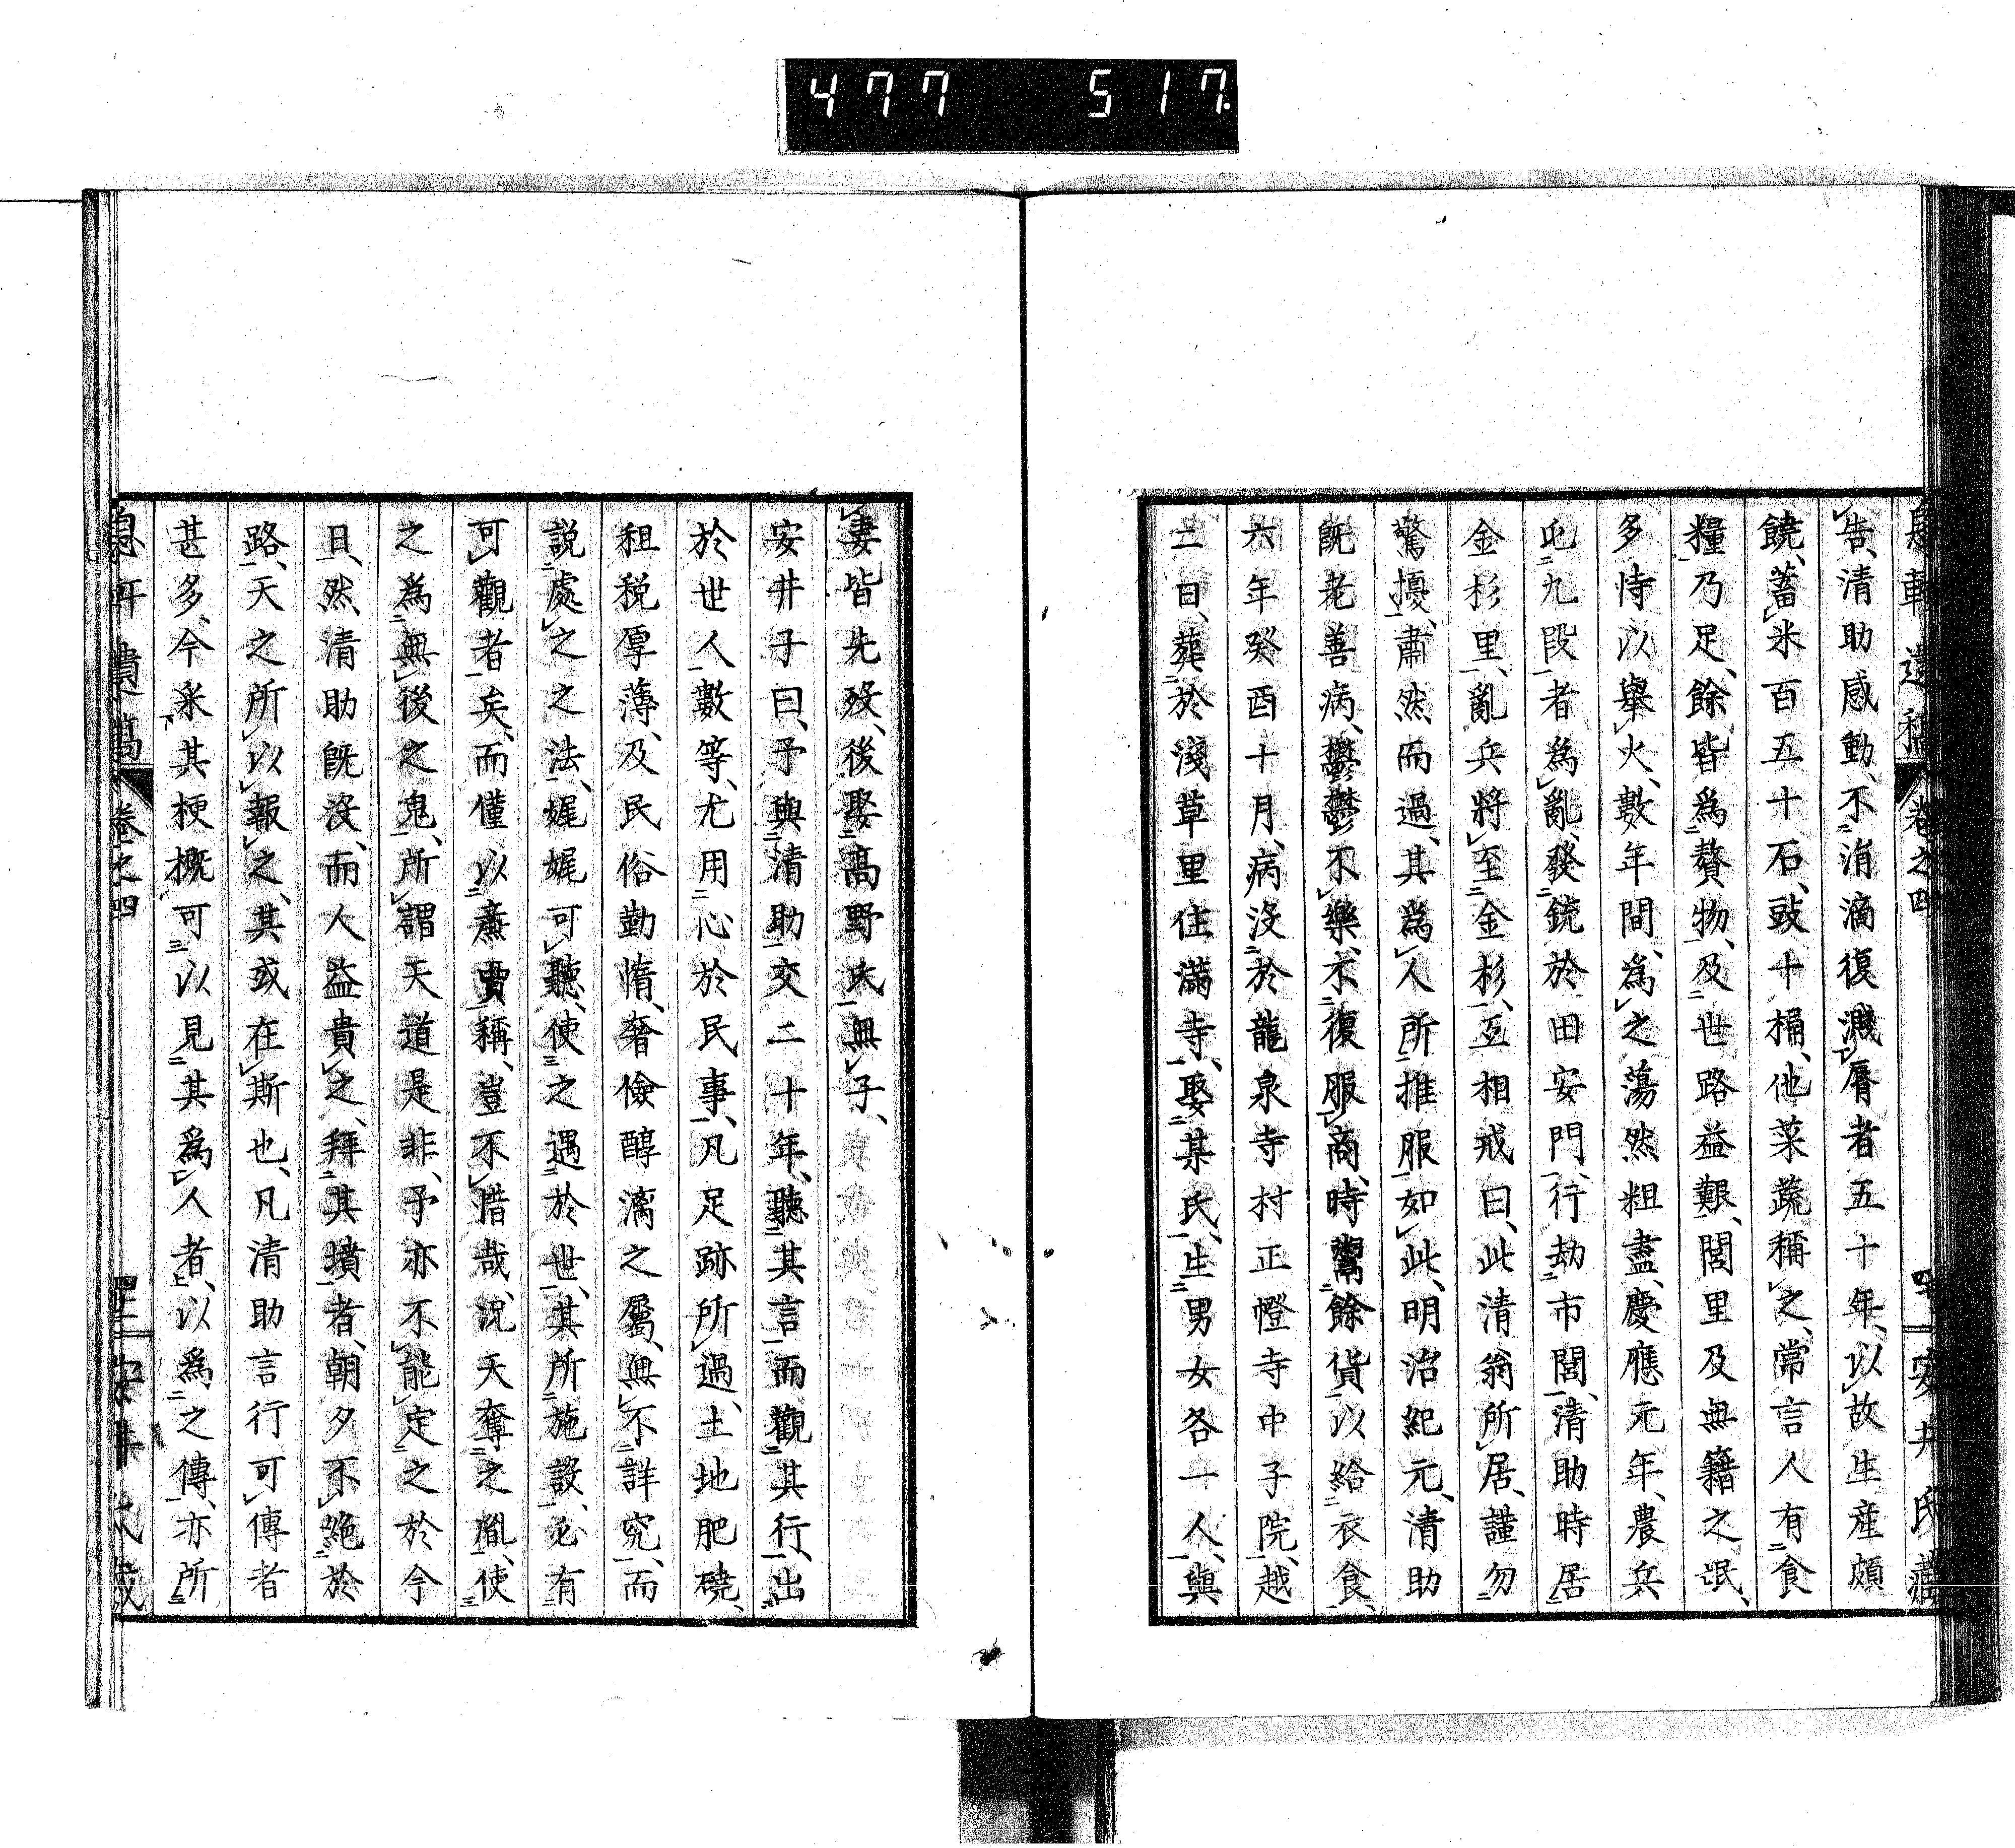 477 517
息軒遺稿 卷之四 安井氏藏
告、清助感動、不涓滴復濺脣者五十年、以故生産頗
饒、蓄米百五十石、豉十桶、他菜蔬稱之、常言人有食
糧乃足、餘皆爲贅物、及世路益艱、閭里及無籍之氓、
多恃以擧火、數年間、爲之蕩然粗盡、慶應元年、農兵
屯九段者爲亂、發銃於田安門、行劫市閭、清助時居
金杉里、亂兵將至金杉、互相戒曰、此清翁所居、謹勿
驚擾、肅然而過、其爲人所推服如此、明治紀元、清助
既老善病、鬱鬱不樂、不復服商、時鬻餘貨以給衣食、
六年癸酉十月、病沒於龍泉寺村正燈寺中子院、越
二日、葬於淺草里住滿寺、娶某氏、生男女各一人、與
妻皆先歿、後娶高野氏無子、
安井子曰、予與清助交二十年、聽其言而觀其行、出
於世人數等、尤用心於民事、凡足跡所過、土地肥磽、
租税厚薄、及民俗勤惰、奢儉醇漓之屬、無不詳究、而
説處之之法、娓娓可聽、使之遇於世、其所施設、必有
可觀者矣、而僅以廉賈稱、豈不惜哉、況天奪之胤、使
之爲無後之鬼、所謂天道是非、予亦不能定之於今
日、然清助既沒、而人益貴之、拜其墳者、朝夕不絶於
路、天之所以報之、其或在斯也、凡清助言行可傳者
甚多、今采其梗概可以見其爲人者、以爲之傳、亦所
息軒遺稿 卷之四 安井氏藏